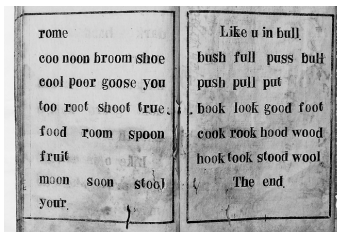 rome
coo noon broom shoe
cool poor goose you
too root shoot true.
food room spoon
fruit
moon soon stool
your.
Like u in bull.
bush full puss bull
push pull put
book look good foot
cook rook hood wood
hook took stood wool
The end.